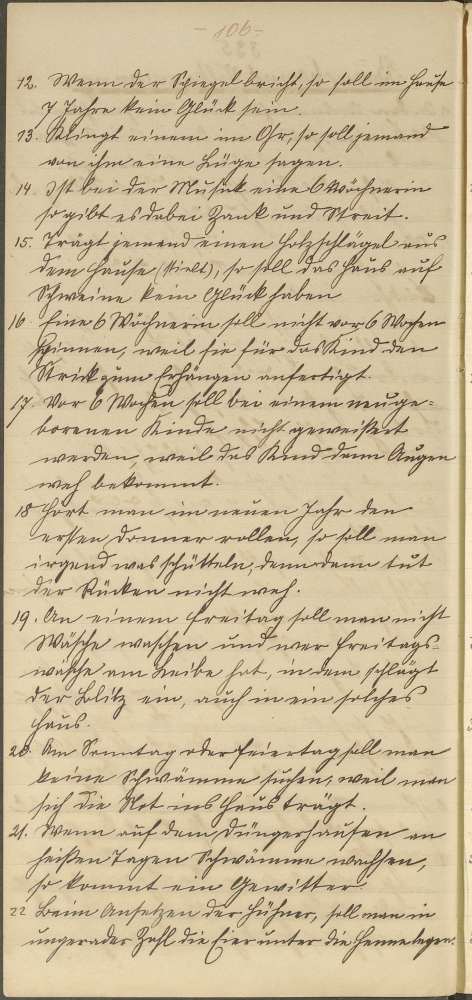 - 106 -
12. Wenn der Spiegel bricht, so soll im Hause
7 Jahre kein Glück sein.
13. Klingt einem im Ohr, so soll jemand
von ihm eine Lüge sagen.
14. Ist bei der Musik eine 6 Wöchnerin
so gibt es dabei Zank und Streit.
15. Trägt jemand einen Holzschlägel aus
dem Hause (stielt), so soll das Haus auf
Schweine kein Glück haben
16. Eine 6 Wöchnerin soll nicht vor 6 Wochen
spinnen, weil sie für das Kind den
Strick zum Erhängen anfertigt.
17. Vor 6 Wochen soll bei einem neuge-
borenen Kinde nicht geweißert
werden, weil das Kind dann Augen
weh bekommt.
18 Hört man im neuen Jahr den
ersten Donner rollen, so soll man
irgend was schütteln, denn dann tut
der Rücken nicht weh.
19. An einem Freitag soll man nicht
Wäsche waschen und wer Freitags-
wäsche am Leibe hat, in dem schlägt
der Blitz ein, auch in ein solches
Haus.
20. Am Sonntag oder Feiertag soll man
keine Schwämme suchen, weil man
sich die Not ins Haus trägt.
21. Wenn auf dem Düngerhaufen an
heißen Tagen Schwämme wachsen,
so kommt ein Gewitter.
22 Beim Ansetzen der Hühner, soll man in
ungerader Zahl die Eier unter die Henne legen.